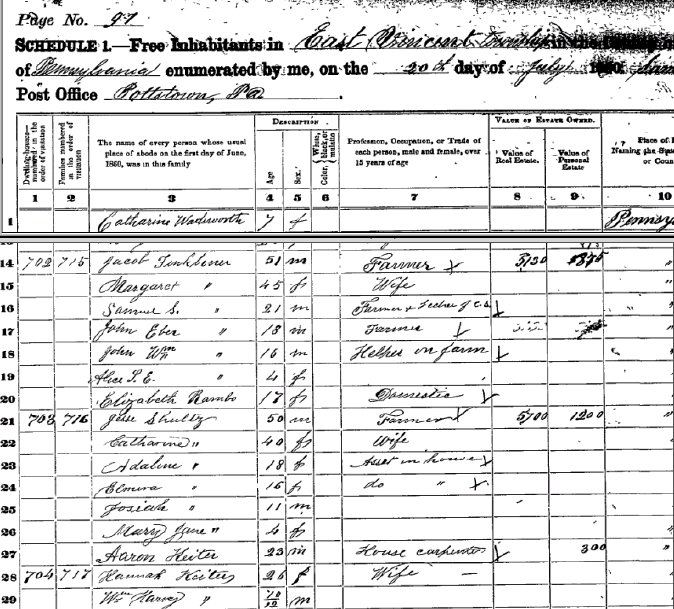 Page No. 97
SCHEDULE 1.—Free Inhabitants in East Vincent Township in the
of Pennsylvania enumerated by me, on the 20th day of July 1860.
Post Office Pottstown, Pa.
Dwelling-houses—numbered in the order of visitation
Families numbered in the order of visitation
The name of every person whose usual place of abode on the first day of June, 1860, was in this family
DESCRIPTION.
Age
Sex.
Color, White, black, or mulatto
Profession, Occupation, or Trade of each person, male and female, over 15 years of age
VALUE OF ESTATE OWNED.
Value of Real Estate.
Value of Personal Estate
Place of
Naming the
or Coun
1 2 3 4 5 6 7 8 9 10
1 Catharine Wadsworth 7 f Pennsy
14 702 715 Jacob Finkbiner 51 m Farmer 1875 "
15 Margaret " 45 f Wife
16 Samuel S. " 21 m Farmer +
17 John Eber " 18 m Farmer
18 John Wm " 16 m Helper on farm
19 Alice " 4 f
20 Elizabeth Rambo 17 f Domestic
21 703 716 Jesse Shultz 50 m Farmer 5700 1200 "
22 Catharine " 40 f Wife
23 Adaline " 18 f Asst in house
24 Elmira " 16 f do "
25 Josiah " 11 m
26 Mary Jane " 4 f
27 Aaron Keiter 23 m House carpenter 300 "
28 704 717 Hannah Keiter 26 f Wife —
29 Wm Harvey " 10/12 m